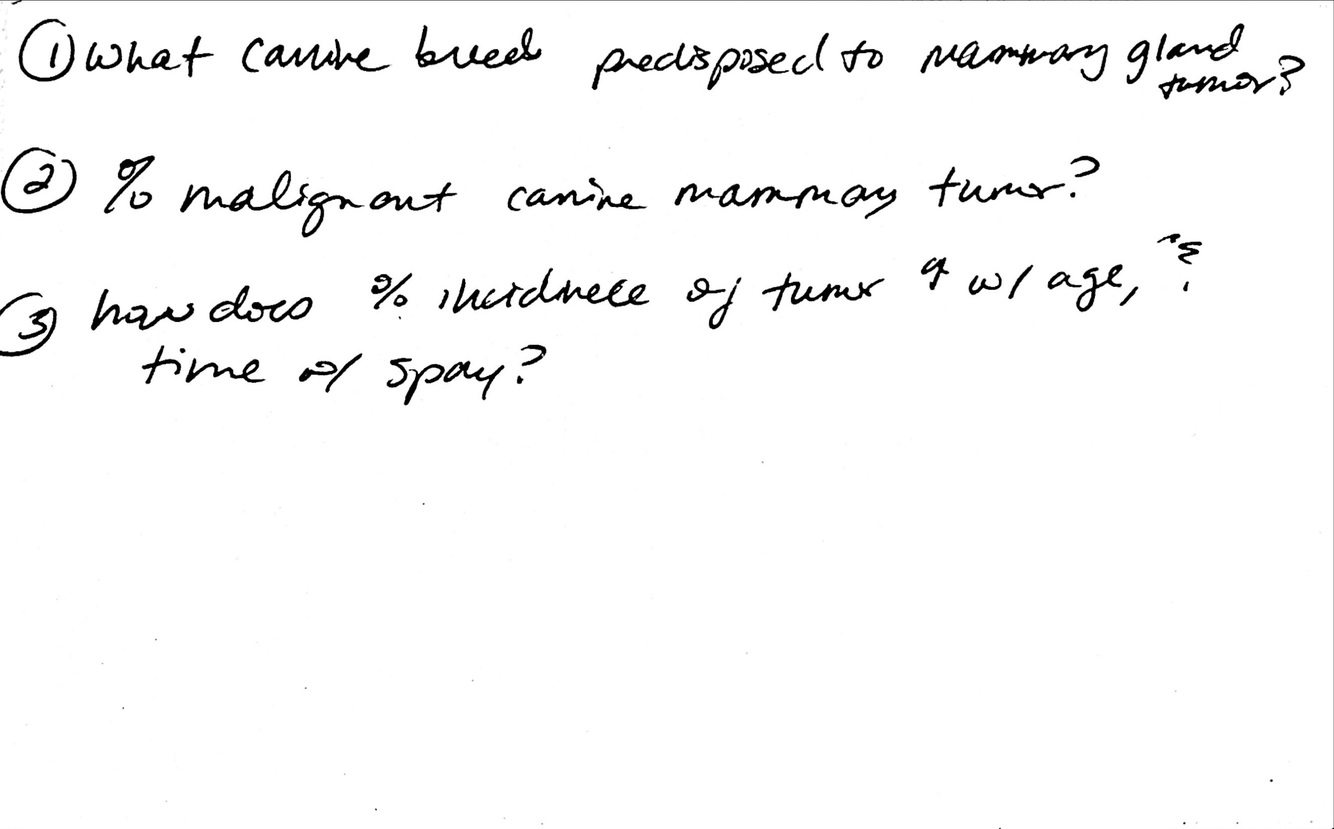 ① What canine breeds predisposed to mammary gland
tumor?
② % malignant canine mammary tumor?
③ how does % incidnece of tumor ↑ w/ age,
time of spay?